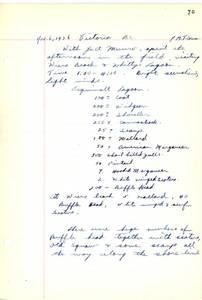 70
Feb. 6, 1926 Victoria B.C.
With Jack Munro, spent the
afternoon in the field, visiting
Weirs Beach & Whittys Lagoon.
Time 1.00 - Bright sunshine,
light wind.
Esquimalt Lagoon.
Coot
200 - Widgeon
200 - Shoveller
255 - Canvasback
25 - Scaup
Mallard
50 - American Merganser
300 Short billed gulls
50 Pintail
7 Hooded Merganser
2 White winged scoters
200 - Buffle Head
At Weirs beach 4 mallard, 40
Buffle Head, White winged & surf
Scoters.
There were large numbers of
Buffle head together with scoters,
old Squaw & some scaup all
the way along the shore line